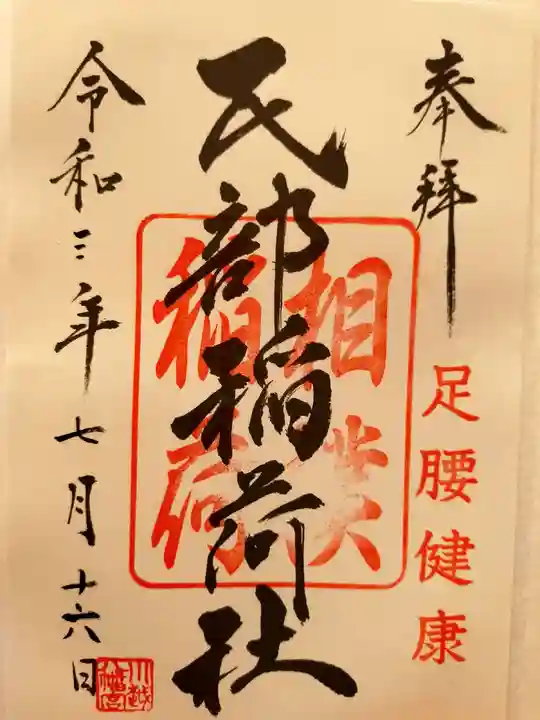 奉拝
足腰健康
民部稲荷社
相撲
稲荷
令和三年七月十六日
川越
八幡宮